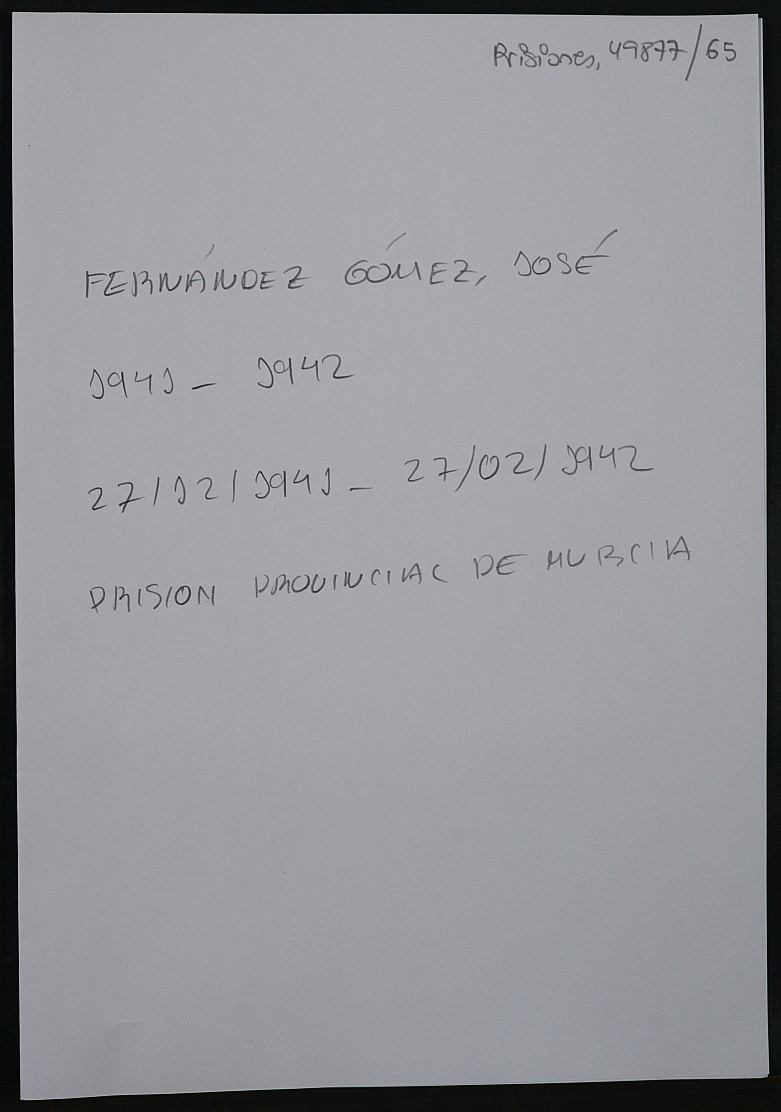 Prisiones, 49877/65
FERNÁNDEZ GÓMEZ, JOSÉ
1941 - 1942
27/12/1941 - 27/02/1942
PRISION PROVINCIAL DE MURCIA